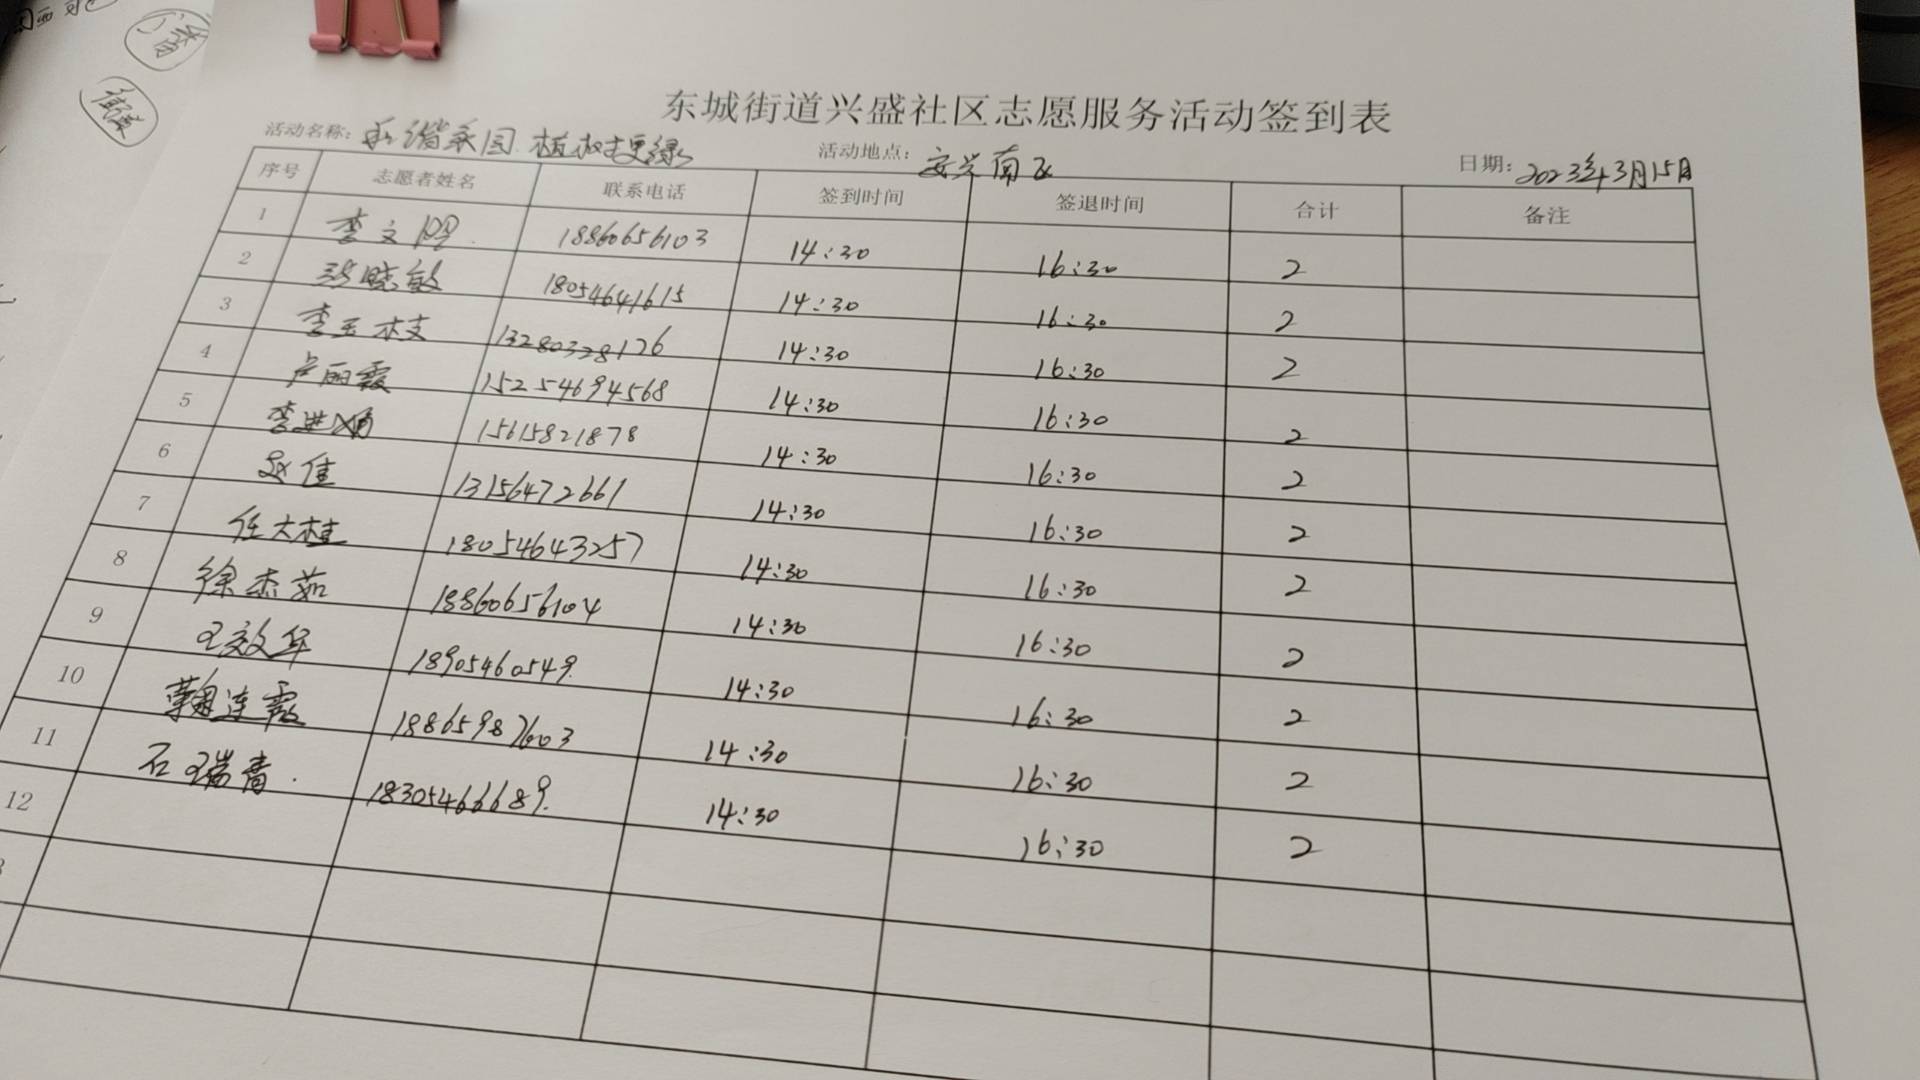 东城街道兴盛社区志愿服务活动签到表
活动名称: 和谐家园 植树更绿 活动地点: 安兴南区 日期: 2023年3月15日
序号 志愿者姓名 联系电话 签到时间 签退时间 合计 备注
1 李文明 18860656103 14:30 16:30 2
2 张晓敏 18054641615 14:30 16:30 2
3 李玉枝 13280328126 14:30 16:30 2
4 卢丽霞 15254694568 14:30 16:30 2
5 李进 15615821878 14:30 16:30 2
6 赵佳 13156472661 14:30 16:30 2
7 任大桂 18054643257 14:30 16:30 2
8 徐杰茹 18860656104 14:30 16:30 2
9 王效华 18905460549 14:30 16:30 2
10 鞠连霞 18865987603 14:30 16:30 2
11 石瑞青 18305466689 14:30 16:30 2
12